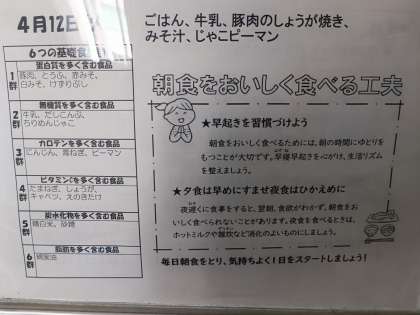 4月12日
ごはん、牛乳、豚肉のしょうが焼き、
みそ汁、じゃこピーマン
6つの基礎食
1群
蛋白質を多く含む食品
豚肉、とうふ、赤みそ、
白みそ、けずりぶし
2群
無機質を多く含む食品
牛乳、だしこんぶ、
ちりめんじゃこ
3群
カロテンを多く含む食品
にんじん、青ねぎ、ピーマン
4群
ビタミンCを多く含む食品
たまねぎ、しょうが、
キャベツ、えのきたけ
5群
炭水化物を多く含む食品
精白米、砂糖
6群
脂肪を多く含む食品
綿実油
朝食をおいしく食べる工夫
★早起きを習慣づけよう
朝食をおいしく食べるためには、朝の時間にゆとりを
もつことが大切です。早寝早起きを心がけ、生活リズム
を整えましょう。
★夕食は早めにすませ夜食はひかえめに
夜遅くに食事をすると、翌朝、食欲がわかず、朝食をお
いしく食べられないことがあります。夜食を食べるときは、
ホットミルクや雑炊など消化のよいものにしましょう。
毎日朝食をとり、気持ちよく1日をスタートしましょう!